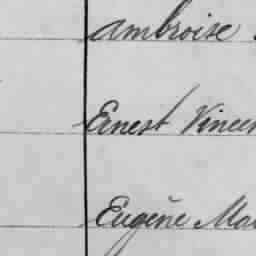 Ambroise
Ernest Vincen
Eugène Ma